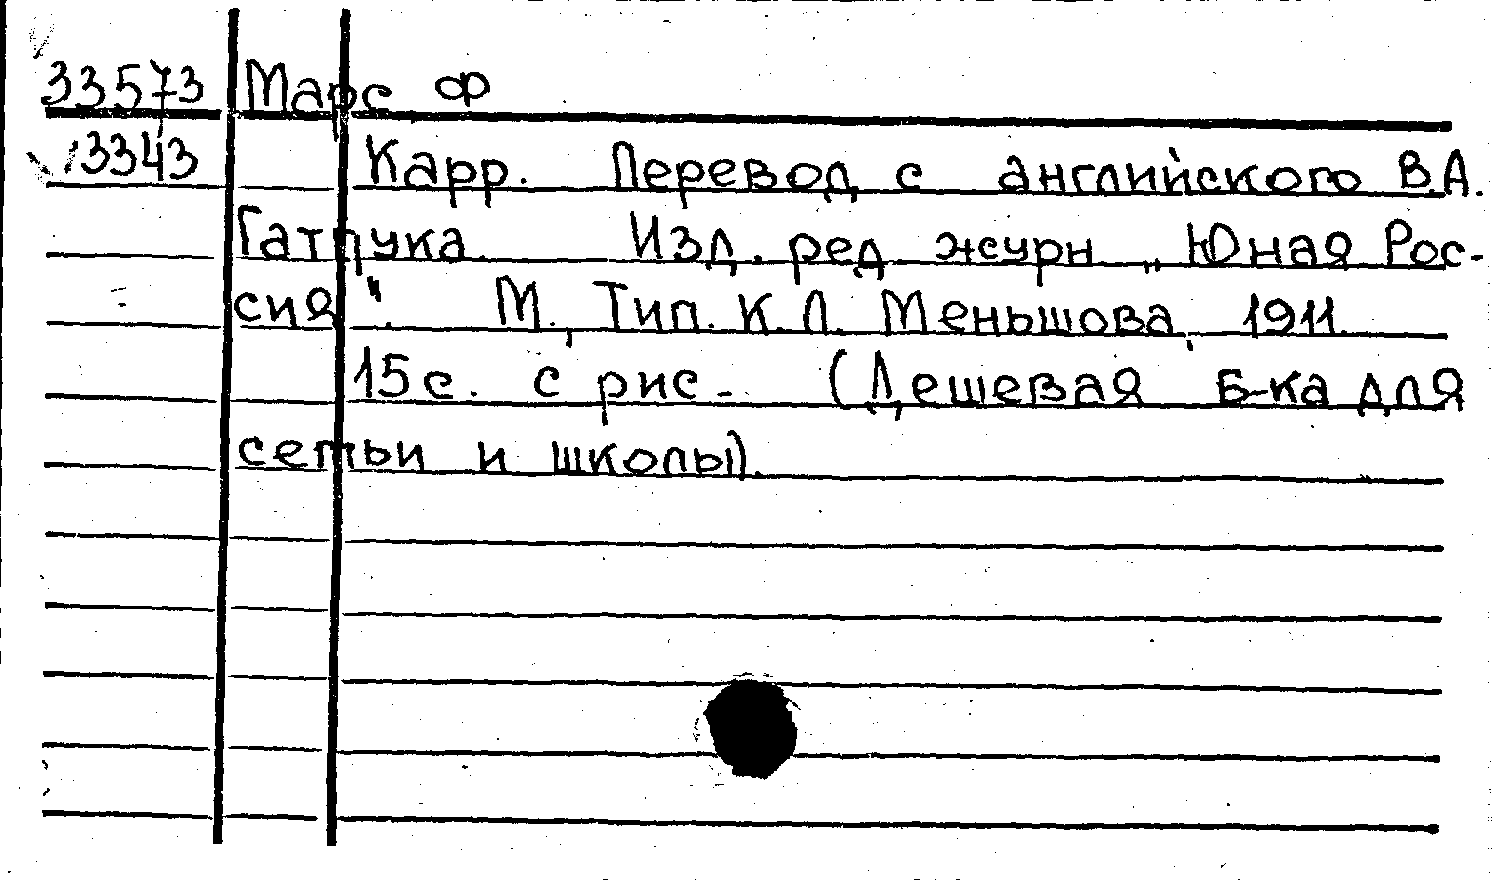 33573 Марс Ф
13343 Карр. Перевод с английского В.А.
Гатцука. Изд. ред. журн „Юная Рос-
сия". М., Тип. К. Л. Меньшова, 1911.
15 с. с рис. (Дешевая Б-ка для
семьи и школы).